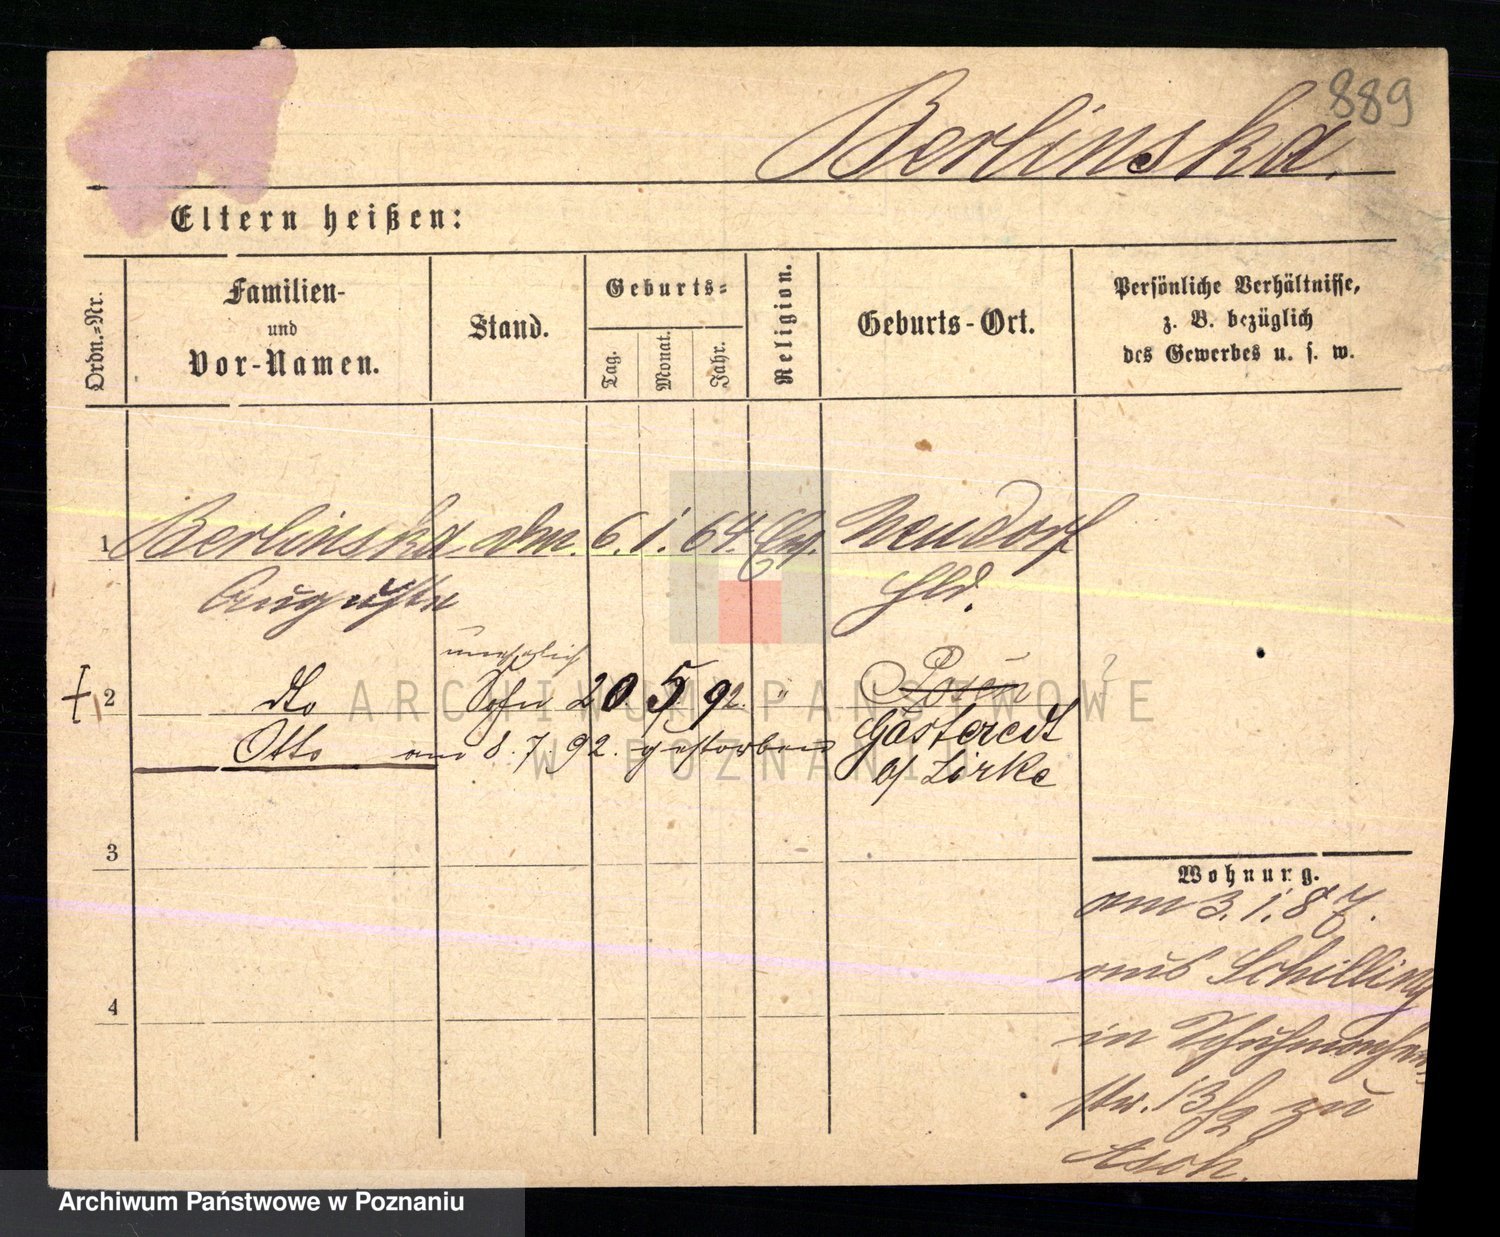 889
Berlinska.
Eltern heißen:
Ordn.-Nr.
Familien- und Vor-Namen.
Stand.
Geburts-
Tag.
Monat.
Jahr.
Religion.
Geburts-Ort.
Persönliche Verhältnisse, z. B. bezüglich des Gewerbes u. s. w.
1 Berlinska 6. 1. 64. Neudorf
Auguste Hld.
unehelich
2 dto Sohn 20 5 92. " Posen ?
Otto am 8. 7 92. gestorben
b/ Zirke
3
Wohnung.
am 3. 1. 87.
aus Schilling
in Schuhmacher
str. 13 zu
Asch.
4
ARCHIWUM PAŃSTWOWE
W POZNANIU
Archiwum Państwowe w Poznaniu